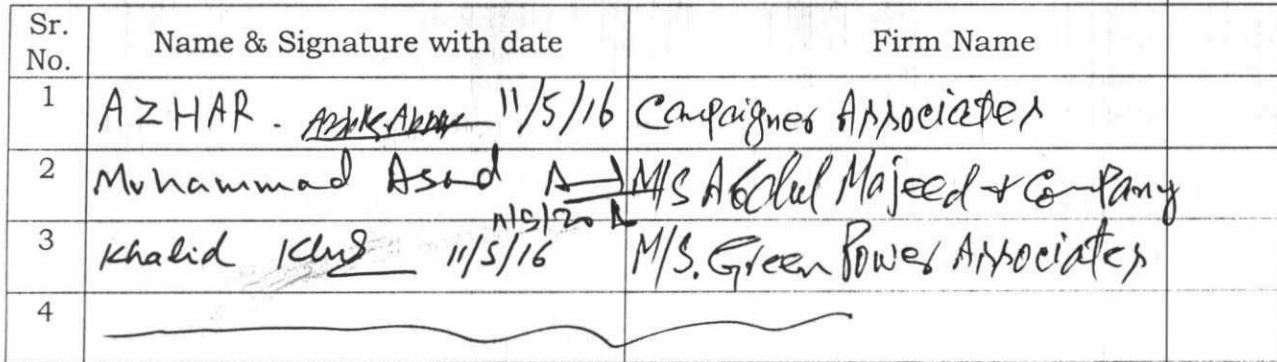 Sr. No. Name & Signature with date Firm Name
1 AZHAR. 11/5/16 Campaigner Associates
2 Muhammad Asad M/S Abdul Majeed & Company
3 Khalid 11/5/16 M/S. Green Power Associates
4